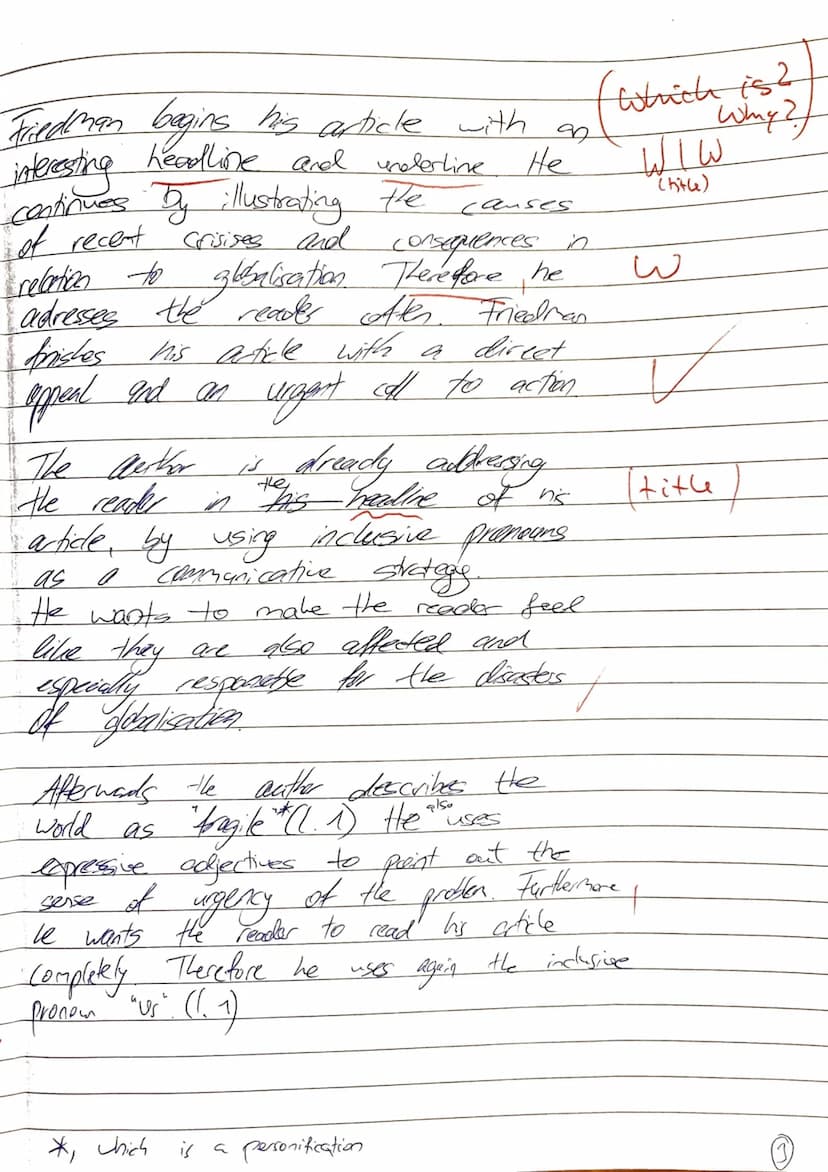 Friedman begins his article with an (Which is? Why?)
interesting headline and underline. He W I W (title)
continues by illustrating the causes
of recent crisises and consequences in
relation to globalisation. Therefore, he W
adresses the reader often. Friedman
finishes his article with a direct
appeal and an urgent call to action.
The author is already addressing
the reader in the his headline of his (title)
article, by using inclusive pronouns
as a communicative strategy.
He wants to make the reader feel
like they are also affected and
especially responsible for the disasters
of globalisation.
Afterwards the author describes the
world as "fragile"* (l. 1) He also uses
expressive adjectives to point out the
sense of urgency of the problem. Furthermore,
he wants the reader to read his article
completely. Therefore he uses again the inclusive
pronoun "us". (l. 1)
*, which is a personification